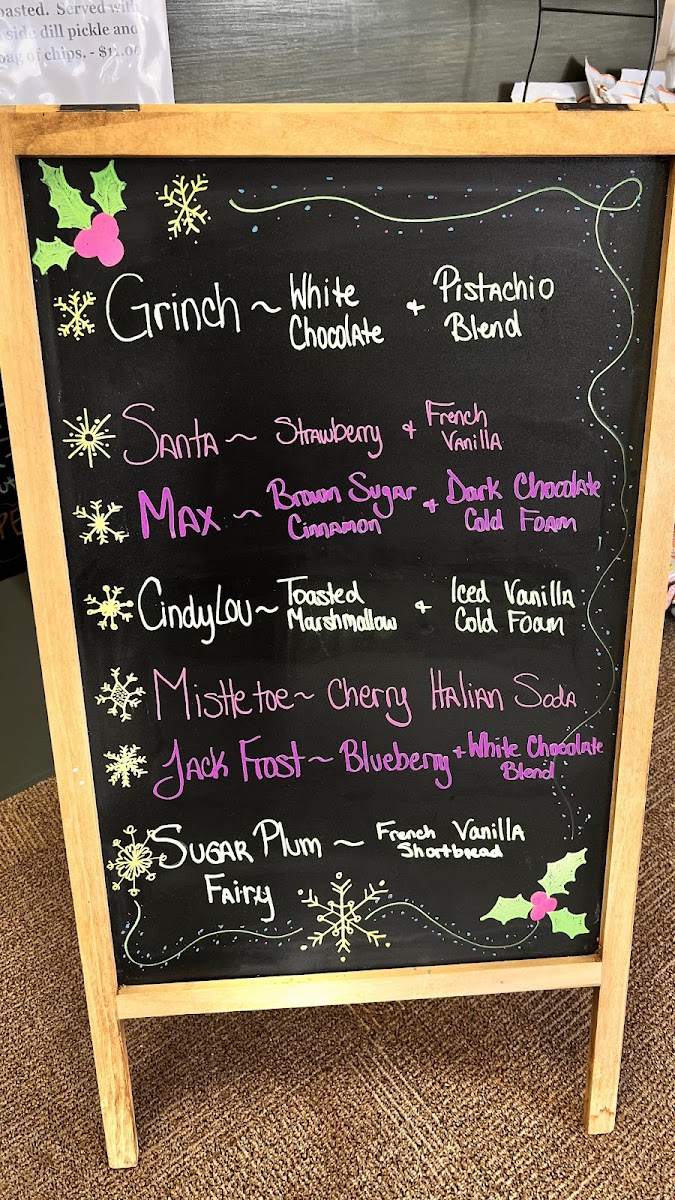 oasted. Served with
side dill pickle and
bag of chips. - $11.00
Grinch ~ White Chocolate + Pistachio Blend
Santa ~ Strawberry + French Vanilla
Max ~ Brown Sugar Cinnamon + Dark Chocolate Cold Foam
CindyLou ~ Toasted Marshmallow + Iced Vanilla Cold Foam
Mistletoe ~ Cherry Italian Soda
Jack Frost ~ Blueberry + White Chocolate Blend
Sugar Plum Fairy ~ French Vanilla Shortbread